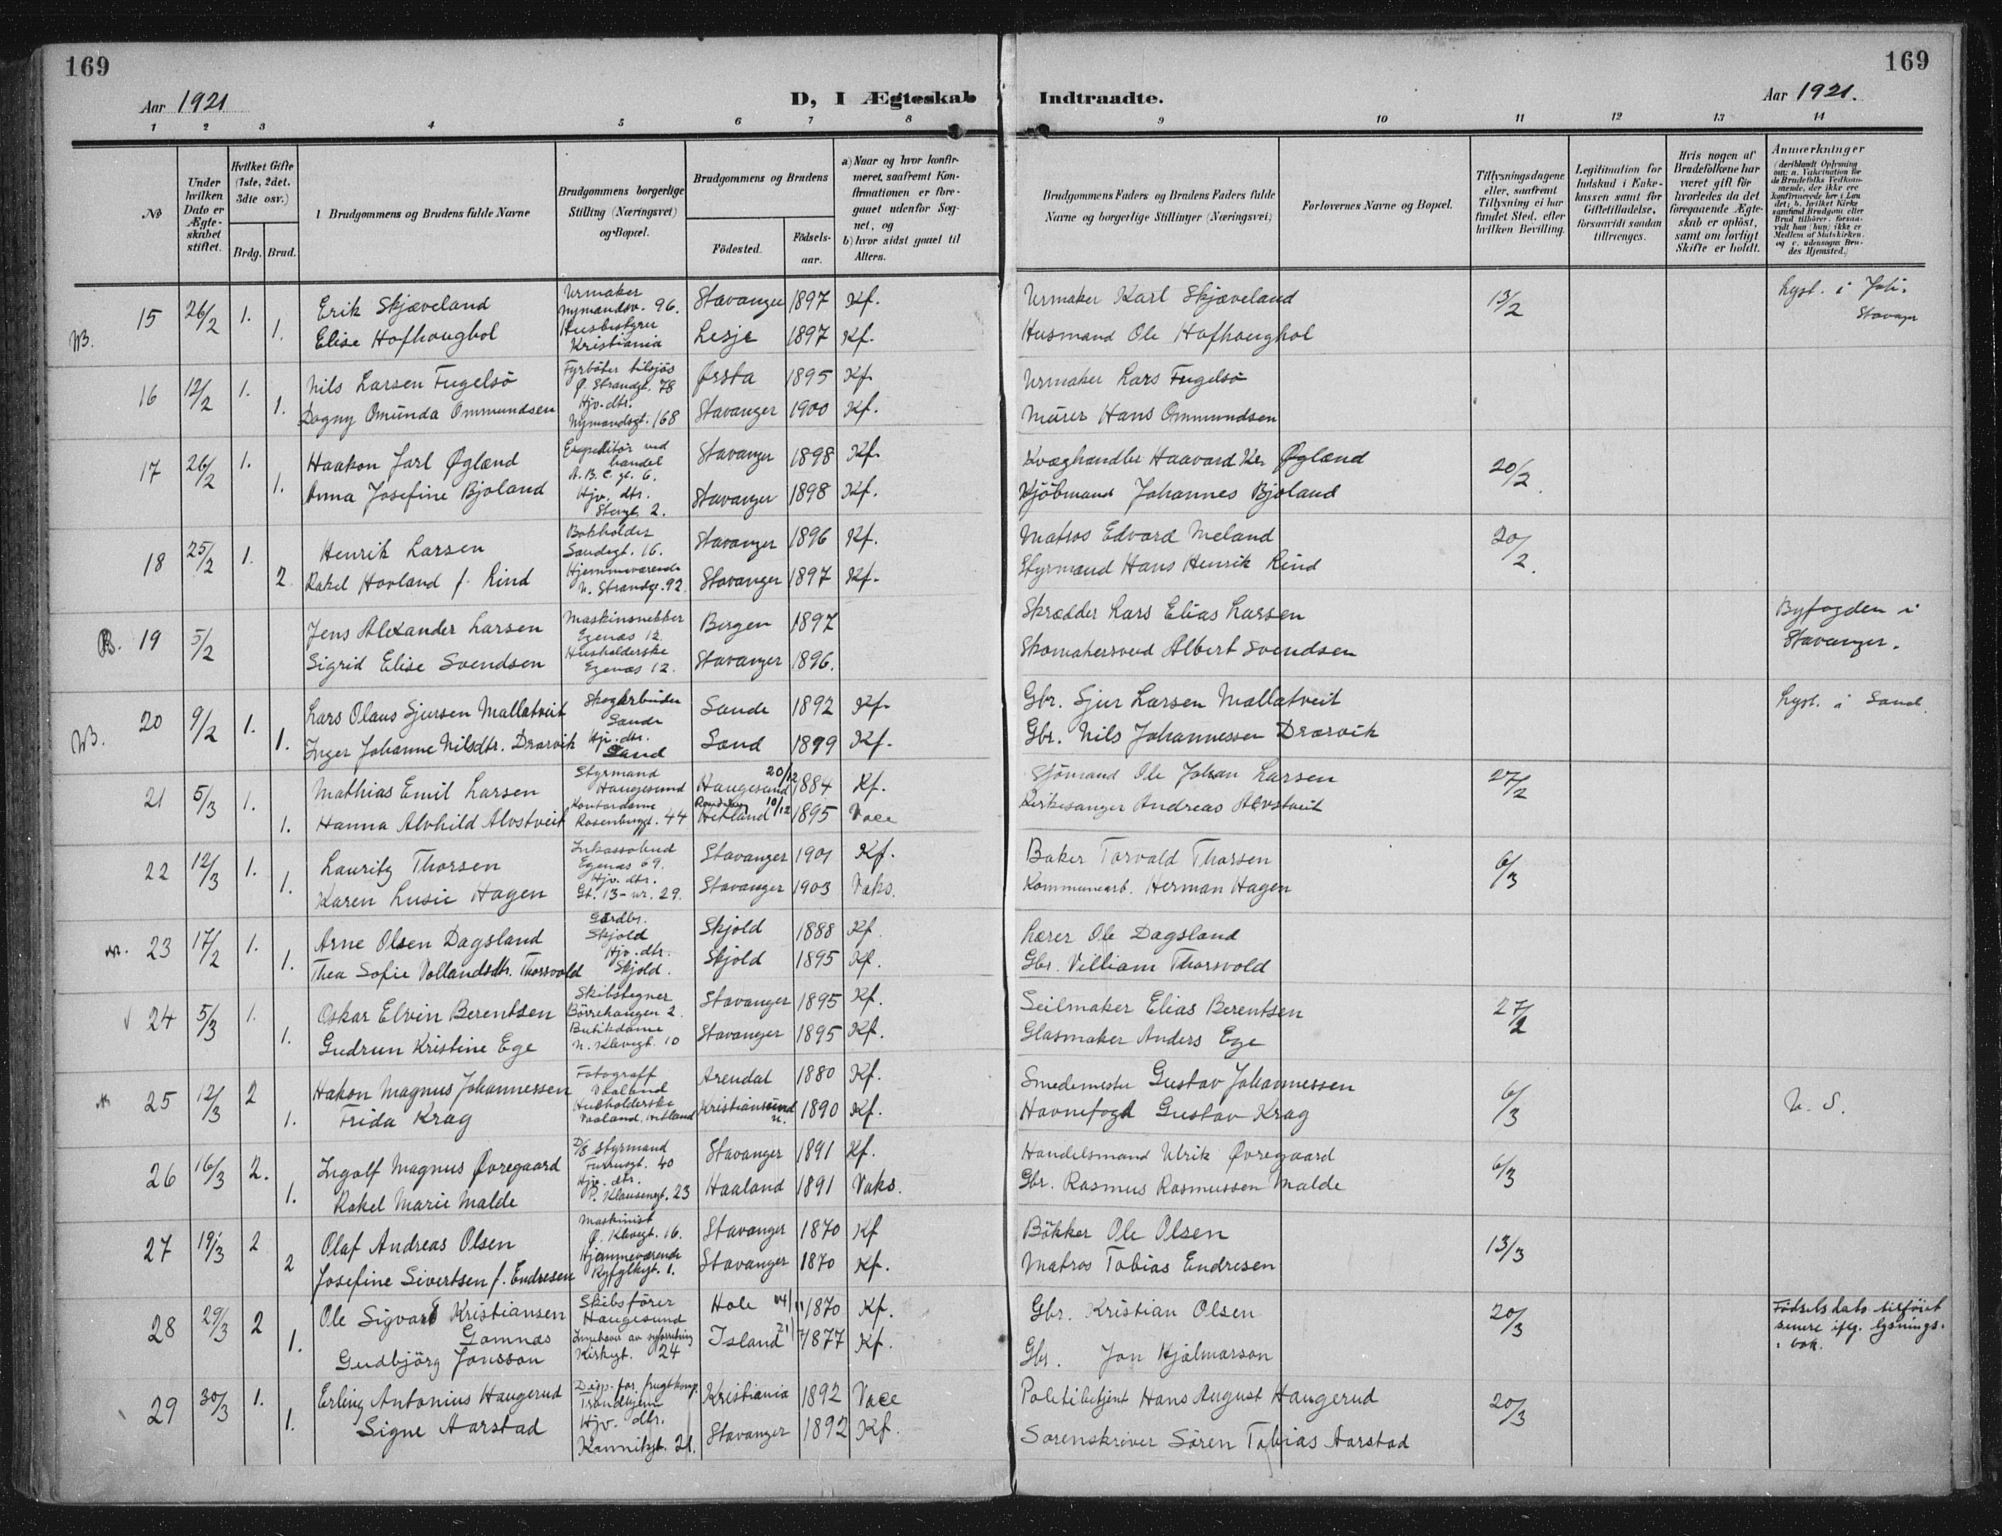 169
169
Aar 1921
D, I Ægteskab Indtraadte.
Aar 1921.
1 2 3 4 5 6 7 8 9 10 11 12 13 14
No
Under hvilken Dato er Ægteskabet stiftet.
Hvilket Gifte (1ste, 2det. 3die osv.)
Brdg. Brud.
1 Brudgommens og Brudens fulde Navne
Brudgommens borgerlige Stilling (Næringsvei) og Bopæl.
Brudgommens og Brudens
Fødested.
Fødselsaar.
a) Naar og hvor konfirmeret, saafremt Konfirmationen er foregaaet udenfor Sognet, og
b) hvor sidst gaaet til Alters.
Brudgommens Faders og Brudens Faders fulde Navne og borgerlige Stillinger (Næringsvei)
Forlovernes Navne og Bopæl.
Tillysningsdagene eller, saafremt Tillysning ei har fundet Sted, efter hvilken Bevilling.
Legitimation for Indskud i Enkekassen samt for Giftetilladelse, forsaavidt saadan tiltrænges.
Hvis nogen af Brudefolkene har været gift før hvorledes da det foregaaende Ægteskab er opløst, samt om lovligt Skifte er holdt.
Anmærkninger
(deriblandt Oplysning om: a. Vakcination for de Brudefolks Vedkommende, der ikke ere konfirmerede her i Landet; b. hvilket Kirkesamfund Brudgom eller Brud tilhører, forsaavidt han (hun) ikke er Medlem af Statskirken, og c. udensogns Brudes Hjemsted.)
15 26/2 1. Erik Skjæveland Urmaker Nymandsv. 96. Stavanger 1897 Kf. Urmaker Karl Skjæveland 13/2 Lyst. i Joh. Stavager
1. Elise Hofhoughol Husbestyrer Kristiania Lesje 1897 Kf. Husmand Ole Hofhoughol
16 12/2 1. Nils Larsen Fugelsö Fyrböter tilsjös Ø. Strandgt. 78 Ørsta 1895 Kf. Urmaker Lars Fugelsö
1. Dagny Omunda Ommundsen Hjv. dtr. Nymandsgt. 168 Stavanger 1900 Kf. Murer Hans Ommundsen
17 26/2 1. Haakon Jarl Øglænd Expeditör ved handel A. B. C. gt. 6. Stavanger 1898 Kf. Kvæghandler Haavard Kr. Øglænd 20/2.
1. Anna Josefine Bjoland Hjv. dtr. 2. Stavanger 1898 Kf. Kjöbmand Johannes Bjoland
18 25/2 1. Henrik Larsen Bokholder Sandsgt. 16. Stavanger 1896 Kf. Matros Edvard Meland 20/2.
2. Rakel Hovland f. Rind Hjemmeværende N. Strandgt. 92 Stavanger 1897 Kf. Styrmand Hans Henrik Rind
B. 19 5/2 Jens Alexander Larsen Maskinsnekker Egenæs 12. Bergen 1897 Skrædder Lars Elias Larsen Byfogden i Stavanger.
Sigrid Elise Svendsen Husholderske Egenæs 12. Stavanger 1896. Skomakersvend Albert Svendsen
20 9/2 1. Lars Olaus Sjursen Mallatveit Skogarbeider Sande Sande 1892 Kf. Gbr. Sjur Larsen Mallatveit Lyst. i Sand.
1. Inger Johanne Nilsdtr. Drarvik Hjv. dtr. Sand Sand 1899 Kf. Gbr. Nils Johannessen Drarvik
21 5/3 1. Mathias Emil Larsen Styrmand Haugesund Haugesund 20/12 1884 Kf. Sjömand Ole Johan Larsen 27/2
1. Hanna Alvhild Alvstveit Kontordame Rosenberggt. 44 Hetland 10/12 1895 Vacc Kirkesanger Andreas Alvstveit
22 12/3 1. Lauritz Thorsen Inkassobud Egenæs 69. Stavanger 1901 Kf. Baker Torvald Thorsen 6/3
1. Karen Lusie Hagen Hjv. dtr. Gt. 13 - nr. 29. Stavanger 1903 Vaks. Kommunearb. Herman Hagen
23 17/2 1. Arne Olsen Dagsland Gardbr. Skjold Skjold 1888 Kf. Lærer Ole Dagsland
1. Thea Sofie Vollandsdtr. Thorsvold Hjv. dtr. Skjold. Skjold 1895 Kf. Gbr. Villiam Thorsvold
24 5/3 1. Oskar Elvin Berentsen Skibstegner Börrehaugen 2. Stavanger 1895 Kf. Seilmaker Elias Berentsen 27/2
1. Gudrun Kristine Ege Butikdame N. Klevgt. 10 Stavanger 1895 Kf. Glasmaker Anders Ege
25 12/3 2 Hakon Magnus Johannessen Fotograff Vaaland Arendal 1880 Kf. Smedemester Gustav Johannessen 6/3 U. S.
1. Frida Krag Husholderske Vaaland, Hetland Kristiansund N. 1890 Kf. Havnefogd Gustav Krag
26 16/3 2. Ingolf Magnus Øvregaard D/S Styrmand Furrusgt. 40 Stavanger 1891 Kf. Handelsmand Ulrik Øvregaard 6/3
1. Rakel Marie Malde Hjv. dtr. P. Klausensgt. 23 Haaland 1891 Vaks. Gbr. Rasmus Rasmussen Malde
27 19/3 2 Olaf Andreas Olsen Maskinist Ø. Klevgt. 16. Stavanger 1870 Kf Bökker Ole Olsen 13/3
2 Josefine Sivertsen f. Endresen Hjemmeværende Ryfylkgt. 1. Stavanger 1870 Kf. Matros Tobias Endresen
28 29/3 2 Ole Sigvard Kristiansen Gamnæs Skibsförer Haugesund Hole 1870 Kf. Gbr. Kristian Olsen 20/3 Födselsdato tilföiet senere iflg. lysningsbok.
1. Gudbjörg Jonsson Innehaver av syforretning Kirkegt. 24 Island 1877 Kf. Gbr. Jon Hjalmarson
29 30/3 1. Erling Antonius Haugerud Disp. for frugtkomp. Trondhjem Kristiania 1892 Vacc Politibetjent Hans August Haugerud 20/3
1. Signe Aarstad Hjv. dtr. Kannikgt. 21. Stavanger 1892 Kf. Sorenskriver Sören Tobias Aarstad